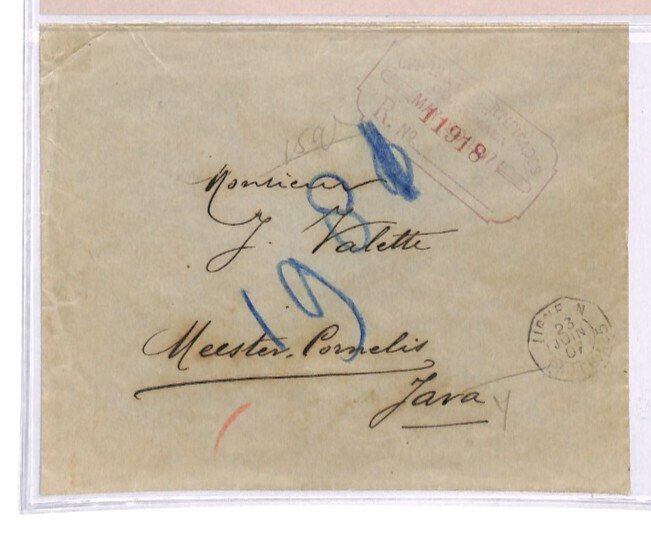 R. No.
11918
Monsieur
J. Valette
198
Meester-Cornelis
Java
LIGNE N
23
JUIN
01